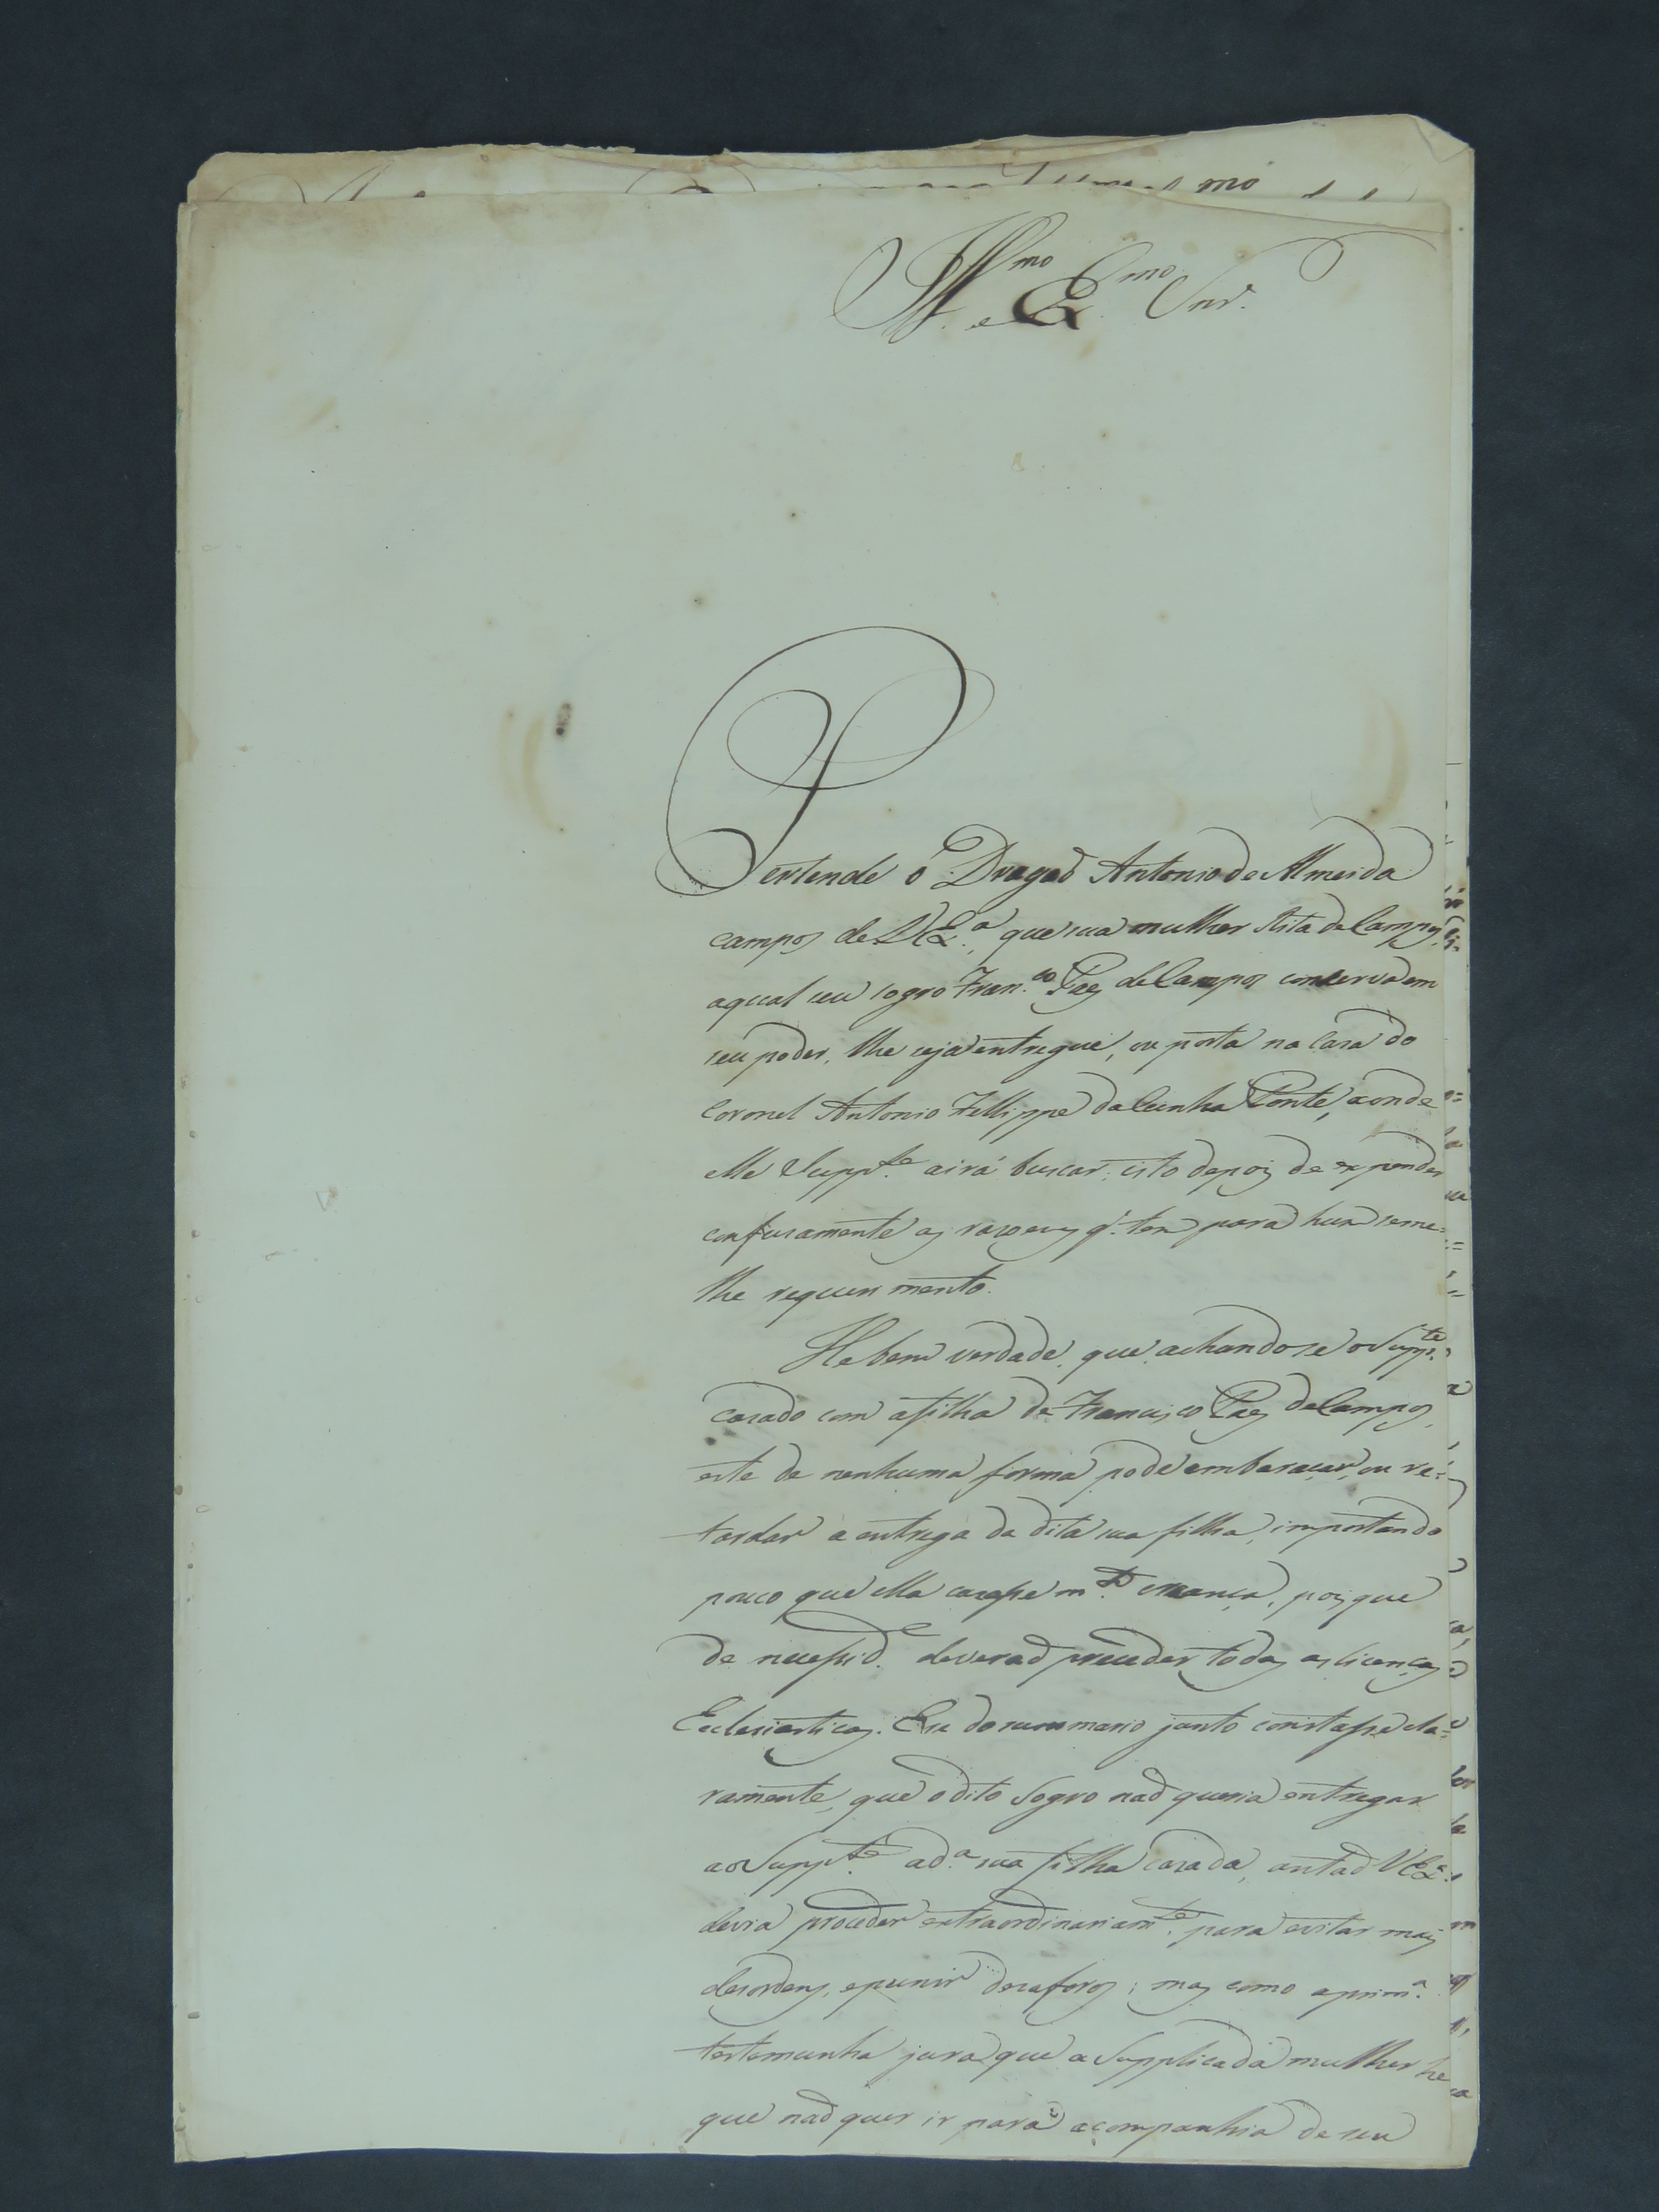 Ill.mo e Ex.mo Snr.
Pertende o Dragaõ Antonio de Almeida
campos de V Ex.a, que sua mulher Rita de Campos,
aqual seu sogro Fran.co Paes de Campos conserva em
seu poder, lhe seja entregue, ou posta na Casa do
Coronel Antonio Fellippe da Cunha Ponte, aonde
elle Supp.te airá buscar: isto depois de expender
confusamente as rasoens q' tem para hum seme=
lhe requerimento.
He bem verdade, que achandose o Supp.te
casado com afilha de Francisco Paes de Campos,
este de nenhuma forma pode embaraçar, ou re=
tardar a entrega da dita sua filha, importando
pouco que ella casasse m.to criança, pois que
de necessid.e deveraõ preceder todas as licenças
Eclesiasticas. E se do summario junto constasse cla=
ramente, que o dito Sogro naõ queria entregar
ao Supp.te ad.a sua filha casada, entaõ V Ex.a
devia proceder extraordinariam.te para evitar mais
desordens, epunir desaforos; mas como aprim.a
testemunha jura que a Supplicada mulher he
que naõ quer ir para acompanhia de seu